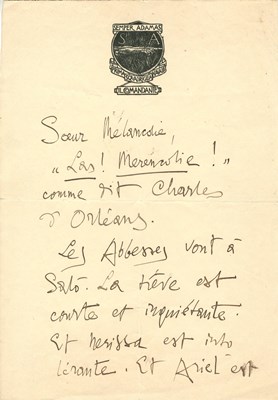 SEMPER ADAMAS
S A
IL COMANDANTE
Sœur Mélancolie,
„Las! Merencolie!"
comme dit Charles
d'Orléans.
Les Abbesses vont à
Salò. La trêve est
courte et inquiétante.
Et Nerissa est into
lérante. Et Ariel est